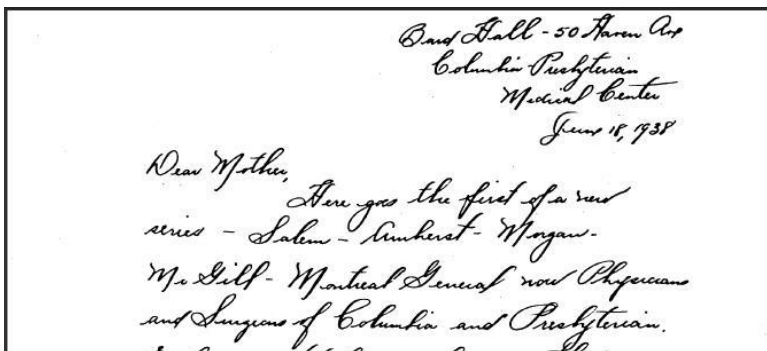 Bard Hall - 50 Haven Ave
Columbia-Presbyterian
Medical Center
June 18, 1938
Dear Mother,
Here goes the first of a new
series - Salem - Amherst - Morgan -
McGill - Montreal General now Physicians
and Surgeons of Columbia and Presbyterian.